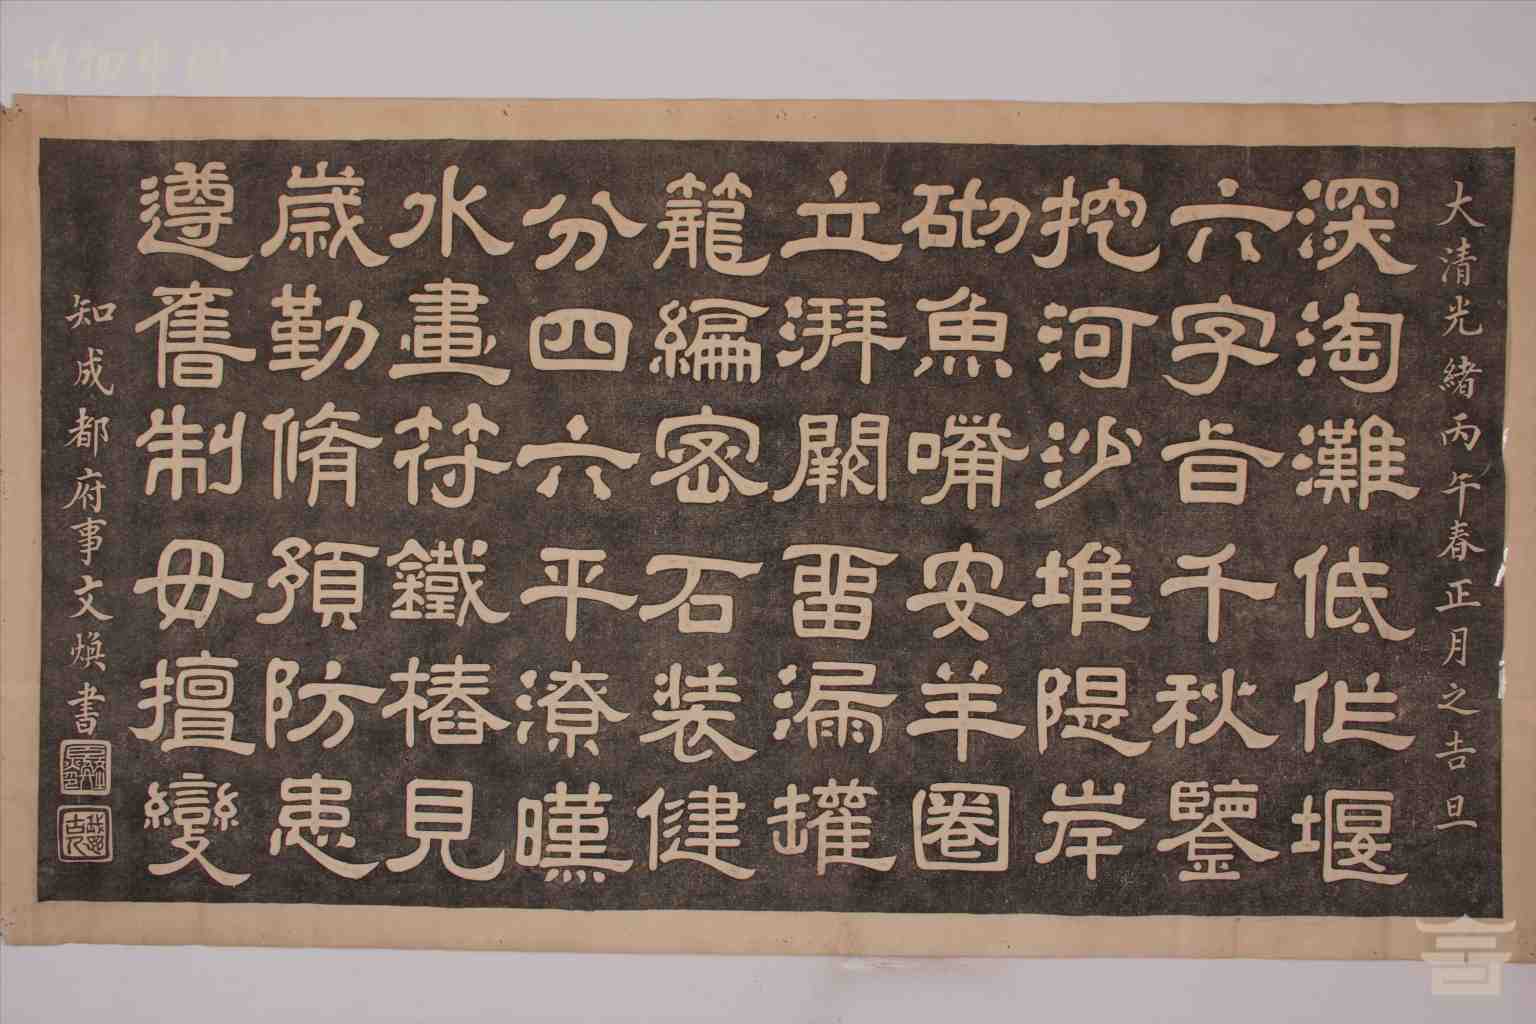 大清光緒丙午春正月之吉旦
深淘灘低作堰
六字旨千秋鑒
挖河沙堆隄岸
砌魚嘴安羊圈
立湃闕留漏罐
籠編密石裝健
分四六平潦暵
水畫符鐵樁見
歲勤脩預防患
遵舊制毋擅變
知成都府事文煥書